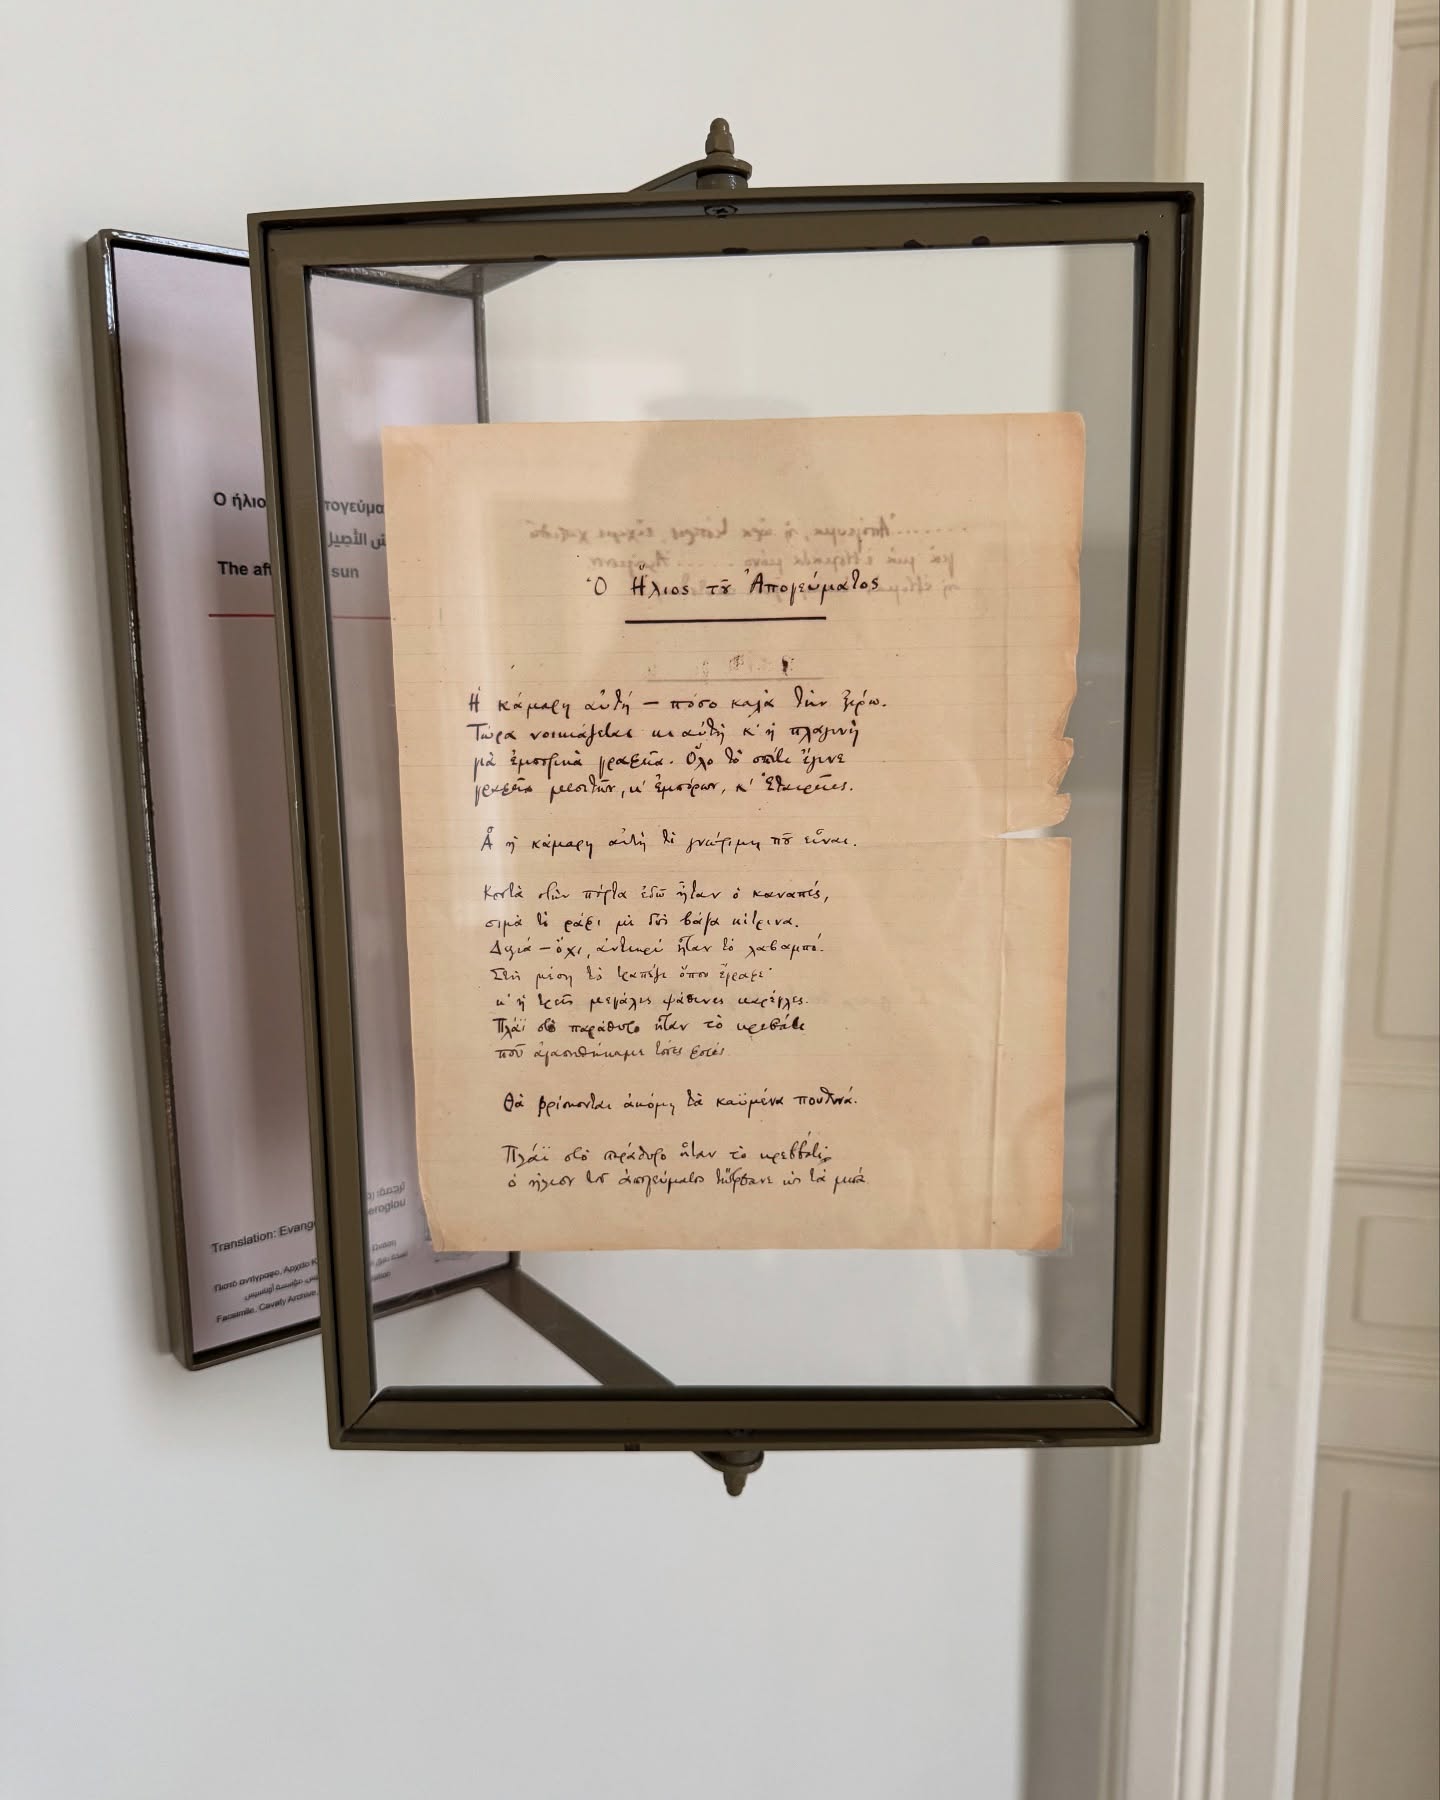 Ο ήλιο τογεύμα
The af sun
Translation: Evang eroglou
Πιστό αντίγραφο, Αρχείο Κ
Facsimile, Cavafy Archive,
Ὁ Ἥλιος τοῦ Ἀπογεύματος
Ἡ κάμαρη αὐτή — πόσο καλὰ τὴν ξέρω.
Τώρα νοικιάζεται κι αὐτὴ κ' ἡ πλαγινὴ
γιὰ ἐμπορικὰ γραφεῖα. Ὅλο τὸ σπίτι ἔγινε
γραφεῖα μεσιτῶν, κ' ἐμπόρων, κ' Ἑταιρεῖες.
Ἆ ἡ κάμαρη αὐτὴ τί γνώριμη ποῦ εἶναι.
Κοντὰ στὴν πόρτα ἐδῶ ἦταν ὁ καναπές,
σιμὰ τὸ ράφι μὲ δυὸ βάζα κίτρινα.
Δεξιά — ὄχι, ἀντικρύ ἦταν τὸ λαβαμπό.
Στὴ μέση τὸ τραπέζι ὅπου ἔγραφε·
κ' ἡ τρεῖς μεγάλες ψάθινες καρέγλες.
Πλάϊ στὸ παράθυρο ἦταν τὸ κρεβάτι
ποῦ ἀγαπηθήκαμε τόσες φορές.
Θὰ βρίσκονται ἀκόμη τὰ καϋμένα πουθενά.
Πλάϊ στὸ παράθυρο ἦταν τὸ κρεββάτι
ὁ ἥλιος τοῦ ἀπογεύματος τὤφθανε ὡς τὰ μισά